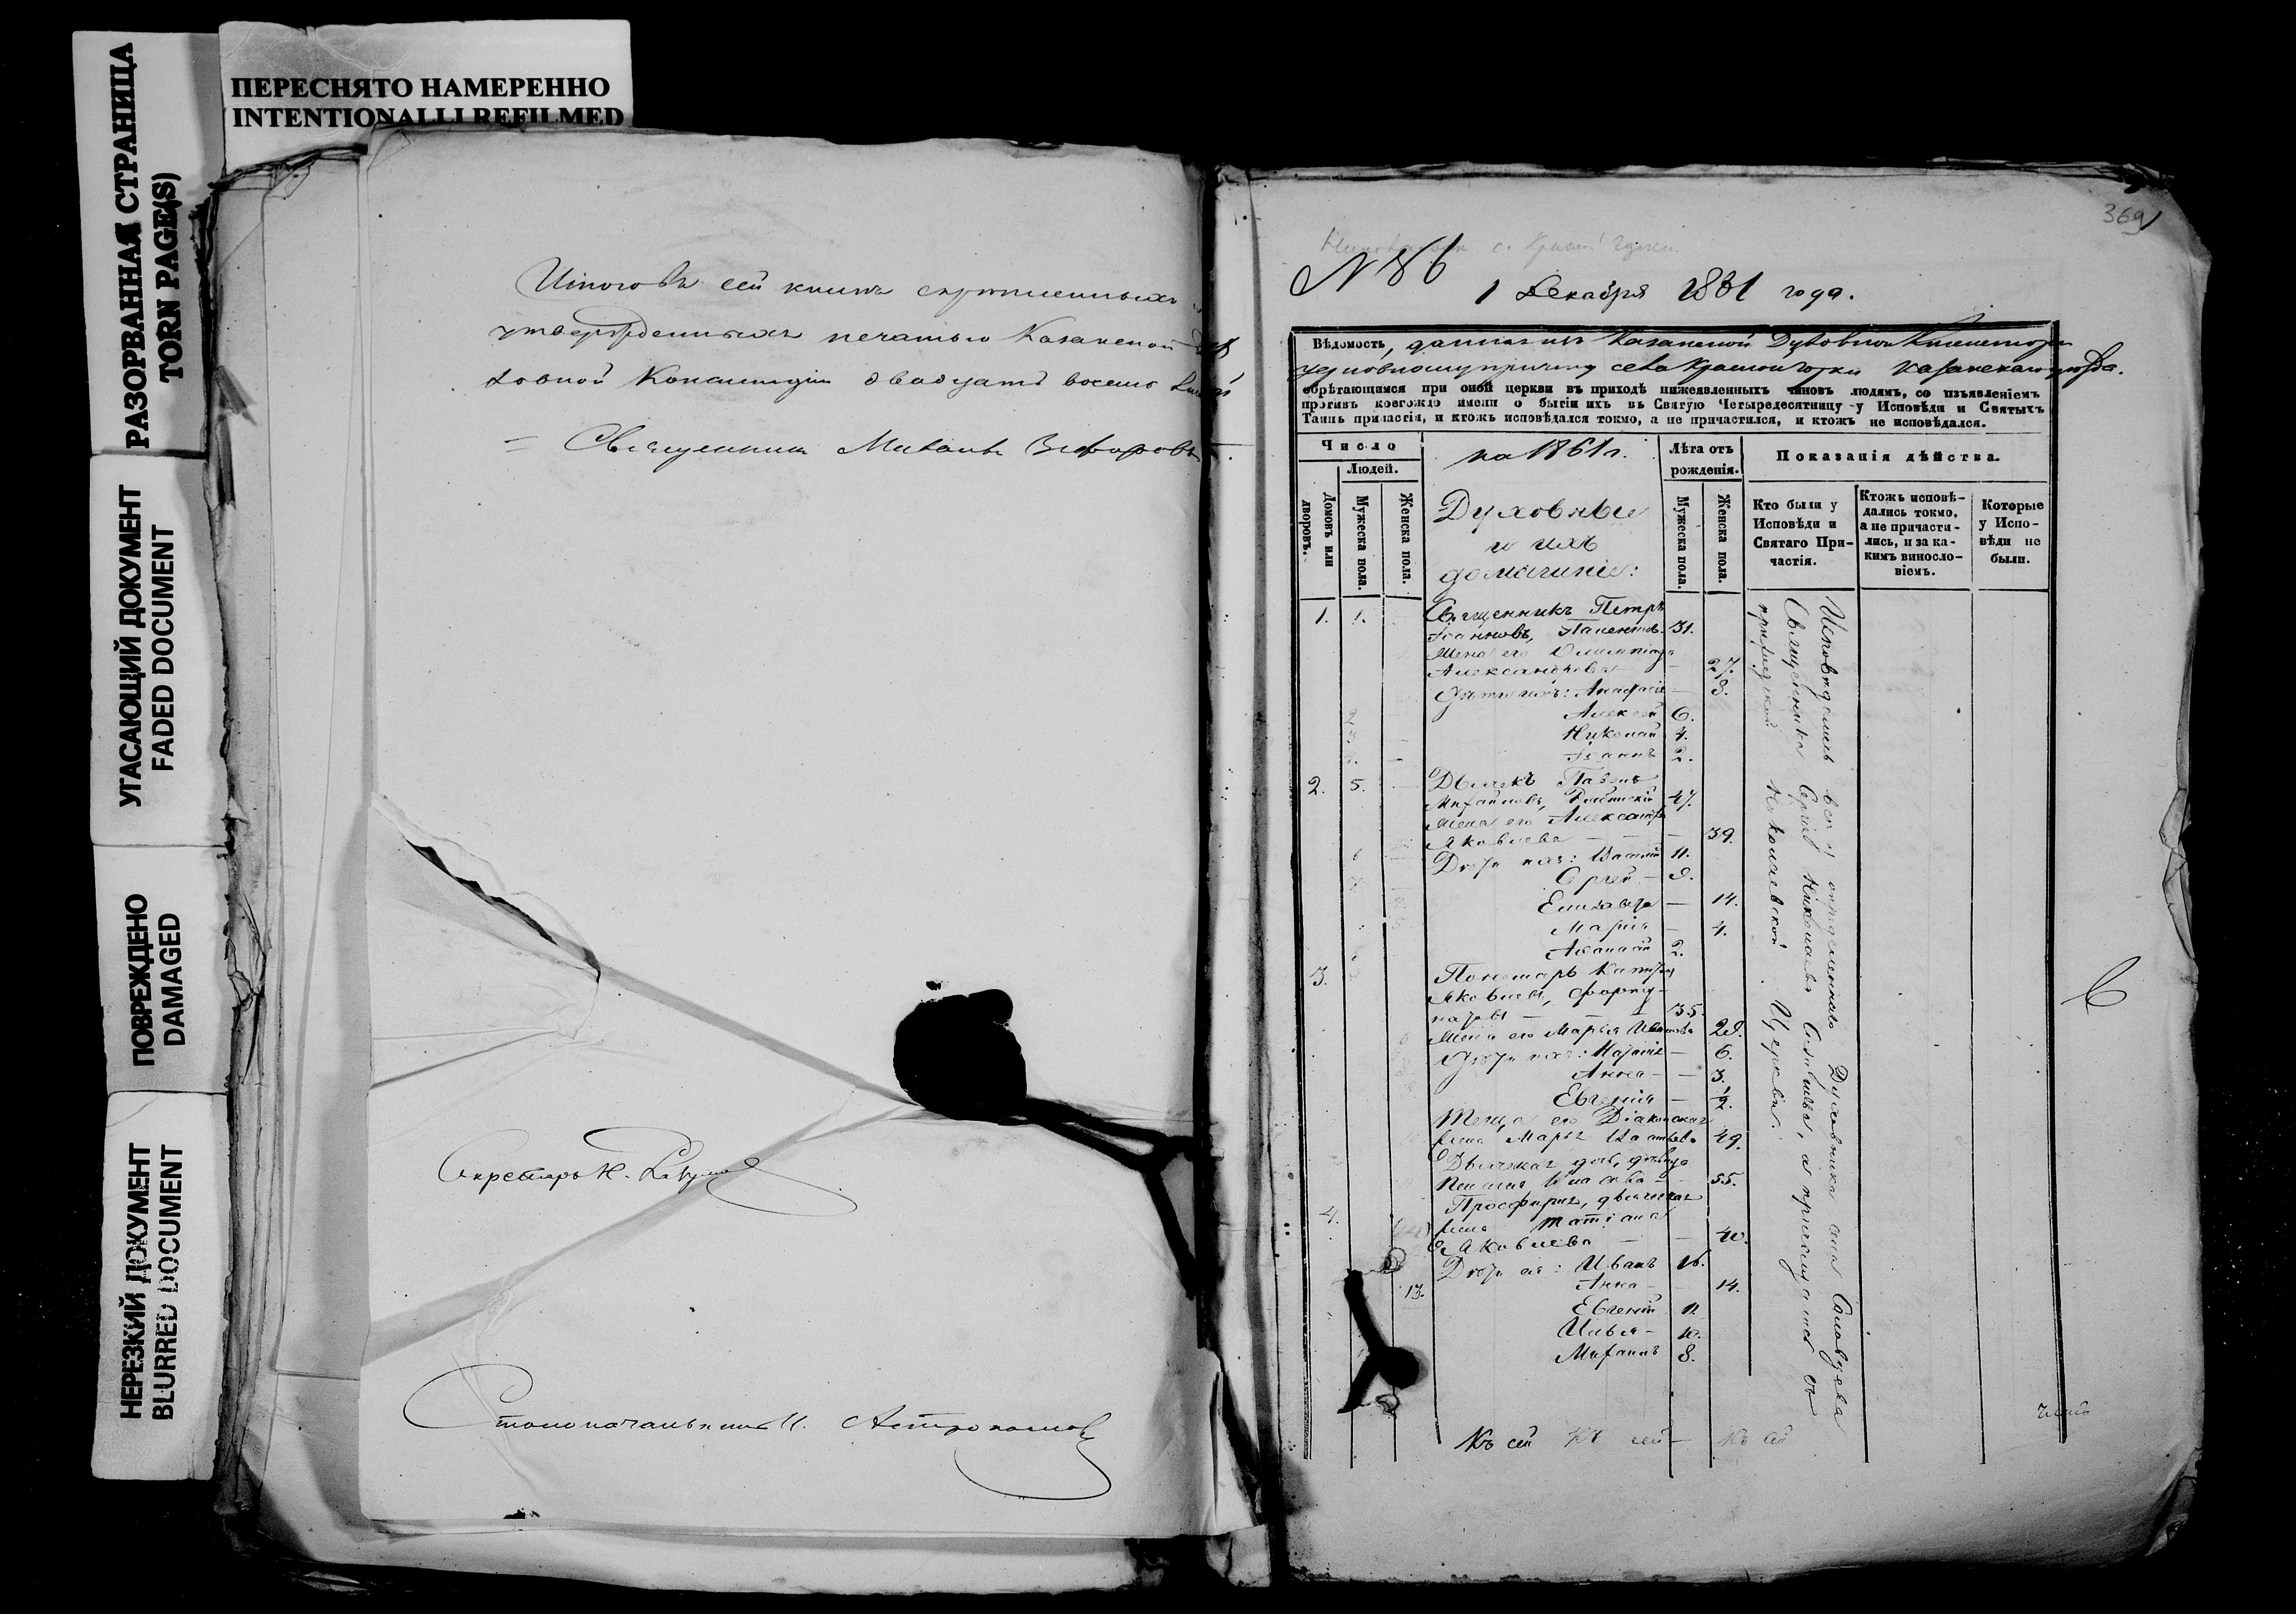 РАЗОРВАННАЯ СТРАНИЦА
TORN PAGE(S)
УГАСАЮЩИЙ ДОКУМЕНТ
FADED DOCUMENT
ПОВРЕЖДЕНО
DAMAGED
НЕРЕЗКИЙ ДОКУМЕНТ
BLURRED DOCUMENT
ПЕРЕСНЯТО НАМЕРЕННО
INTENTIONALLI REFILMED
Итого въ сей книгѣ скрѣпленныхъ
утвержденныхъ печатью Казанской Ду
ховной Консисторіи двадцать восемь
Священникъ Михаилъ
Секретарь К.
Столоначальникъ И.
369
№ 86
1 Декабря 1861 года.
Вѣдомость, данная изъ Казанской Духовной Консисторіи
церковному причту села Красной Горки Казанскаго уѣзда.
обрѣтающимся при оной церкви въ приходѣ нижеявленныхъ чиновъ людямъ, со изъявленіемъ
противъ коегождо имени о бытіи ихъ въ Святую Четыредесятницу у Исповѣди и Святыхъ
Таинъ причастія, и ктожъ исповѣдался токмо, а не причастился, и ктожъ не исповѣдался.
Число
Людей.
Домовъ или дворовъ.
Мужеска пола.
Женска пола.
на 1861 г.
Духовные
и ихъ
домашніе:
Лѣта отъ рожденія.
Мужеска пола.
Женска пола.
Показанія дѣйства.
Кто были у Исповѣди и Святаго Причастія.
Ктожъ исповѣдались токмо, а не причастились, и за какимъ винословіемъ.
Которые у Исповѣди не были.
1. 1. Священникъ Петръ
Іоанновъ, 31.
Жена его Олимпіада
Александрова — 27.
Дѣти ихъ: Анастасія — 8.
Алексѣй 6.
Николай 4.
Іоаннъ 2.
2. 5. Дьячекъ Павелъ
Михайловъ, 47.
Жена его Александра
Яковлева — 39.
Дѣти ихъ: Василій 11.
Сергѣй — 9.
Елизавета — 14.
Марія — 4.
Аѳанасій 2.
3. Пономарь
Яковлевъ, Форту-
натовъ — 35.
Жена его Марья Иванова 28.
Дѣти ихъ: Наталія — 6.
Анна — 3.
Евгенія — 1/2.
Теща его Діаконская
жена Марья 49.
Дьяческая дочь, дѣвица
55.
4. Просфирня, дьяческая
жена Татіана
Яковлева — 40.
Дѣти ея: Иванъ 16.
13. Анна — 14.
Евгеній 11.
Илья — 10.
Михаилъ 8.
Исповѣдались всѣ у опредѣленнаго Духовника села
Священника Сергія Николаева а причащались въ
приходской Николаевской Церкви.
Къ сей Къ сей — Къ сей